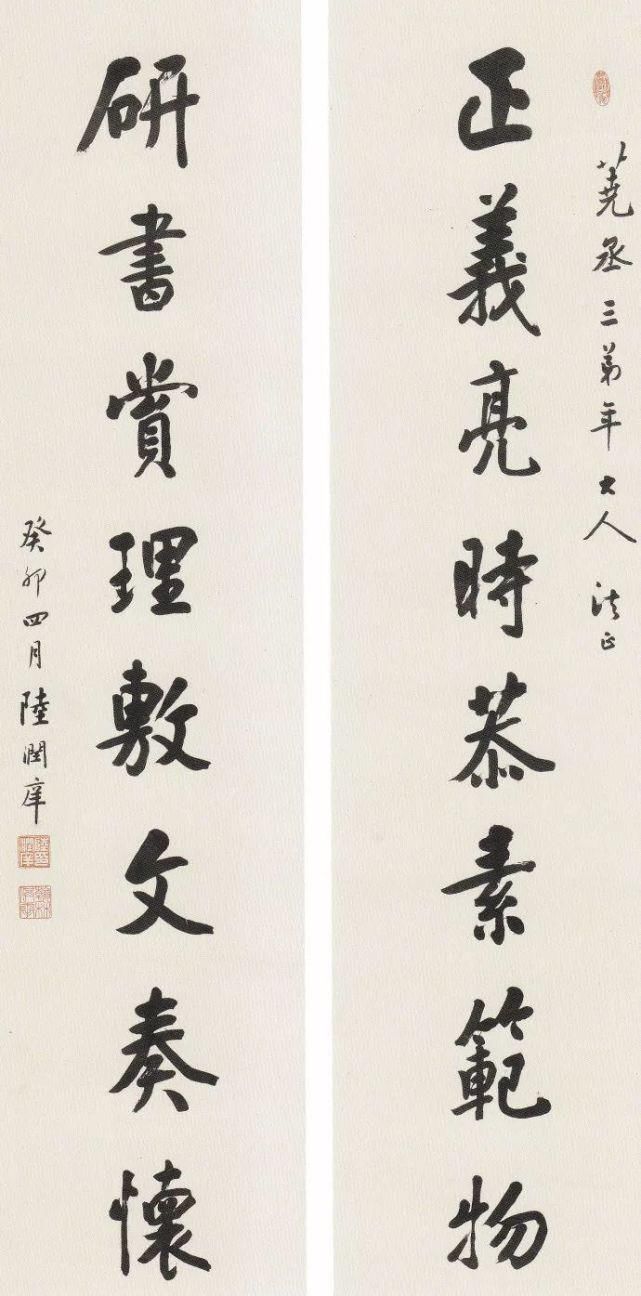 蕘丞三弟年大人 法正
正義亮時恭素範物
研書賞理敷文奏懷
癸卯四月陸潤庠